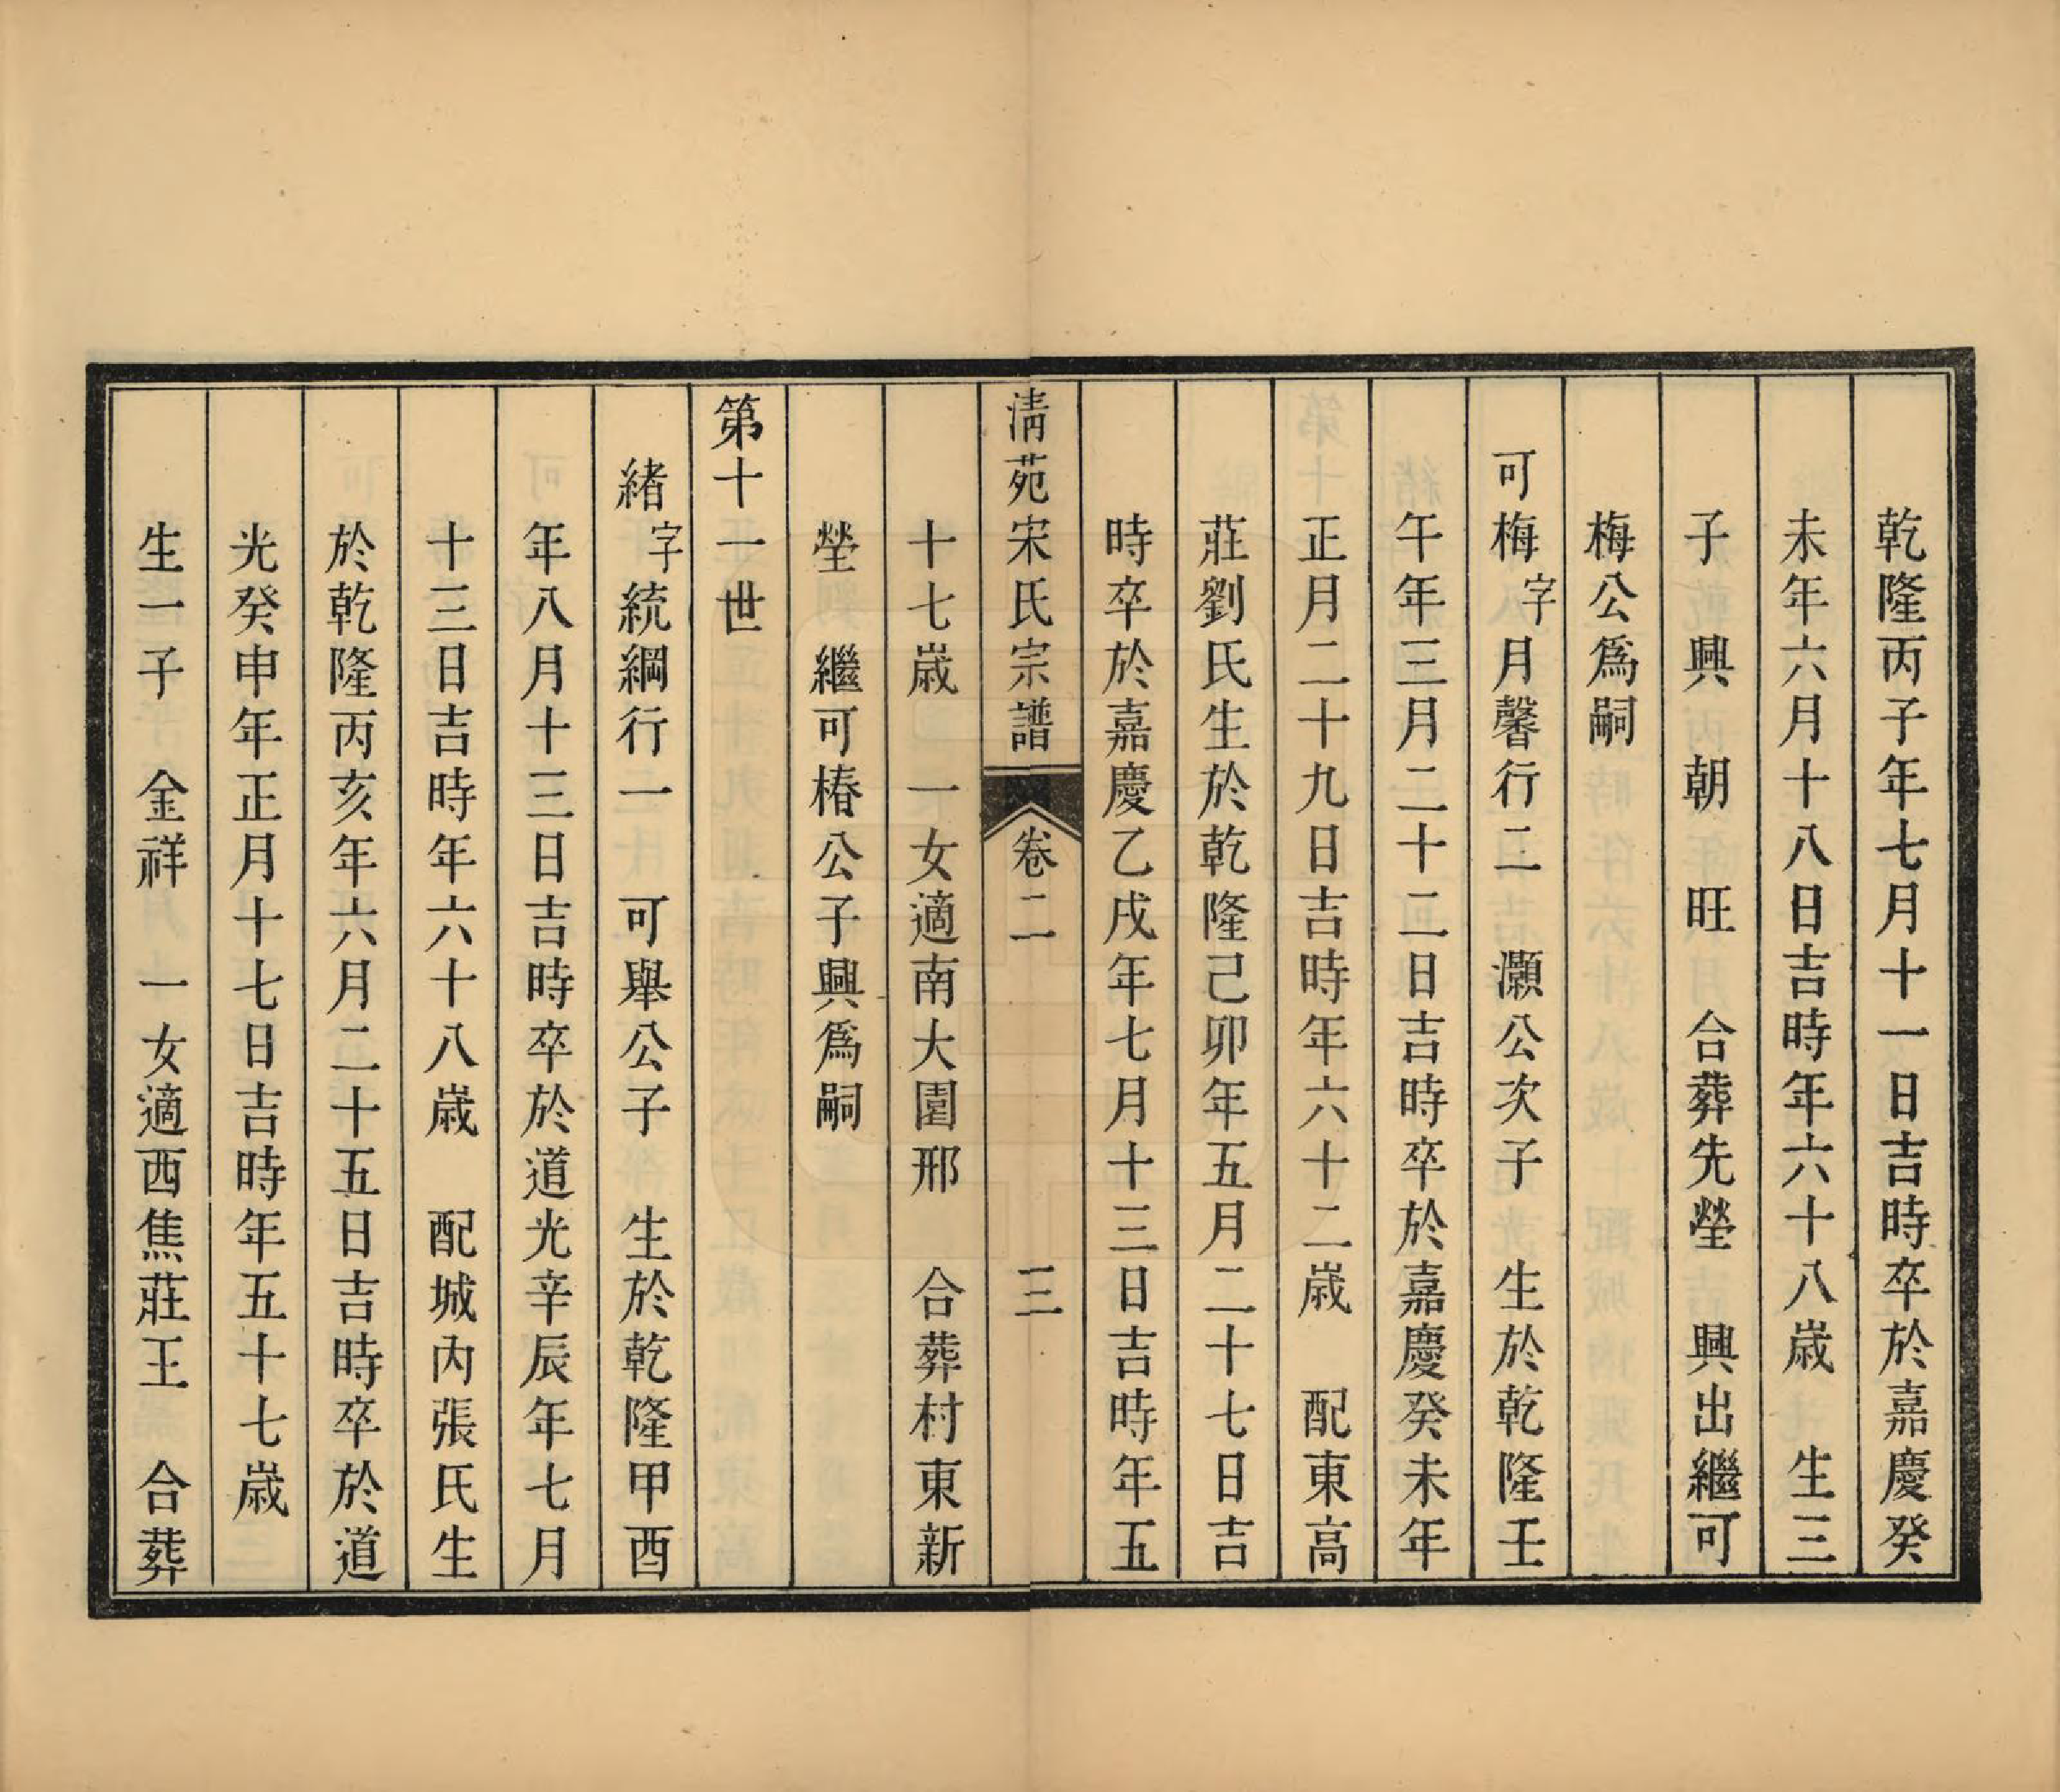 乾隆丙子年七月十一日吉時卒於嘉慶癸
未年六月十八日吉時年六十八歲　生三
子　興　朝　旺　合葬先塋　興出繼可
梅公爲嗣
可梅字月馨行二　灝公次子　生於乾隆壬
午年三月二十二日吉時卒於嘉慶癸未年
正月二十九日吉時年六十二歲　配東高
莊劉氏生於乾隆己卯年五月二十七日吉
時卒於嘉慶乙戌年七月十三日吉時年五
清苑宋氏宗譜　卷二　三
十七歲　一女適南大園邢　合葬村東新
塋　繼可椿公子興爲嗣
第十一世
緒字統綱行一　可舉公子　生於乾隆甲酉
年八月十三日吉時卒於道光辛辰年七月
十三日吉時年六十八歲　配城內張氏生
於乾隆丙亥年六月二十五日吉時卒於道
光癸申年正月十七日吉時年五十七歲
生一子　金祥　一女適西焦莊王　合葬